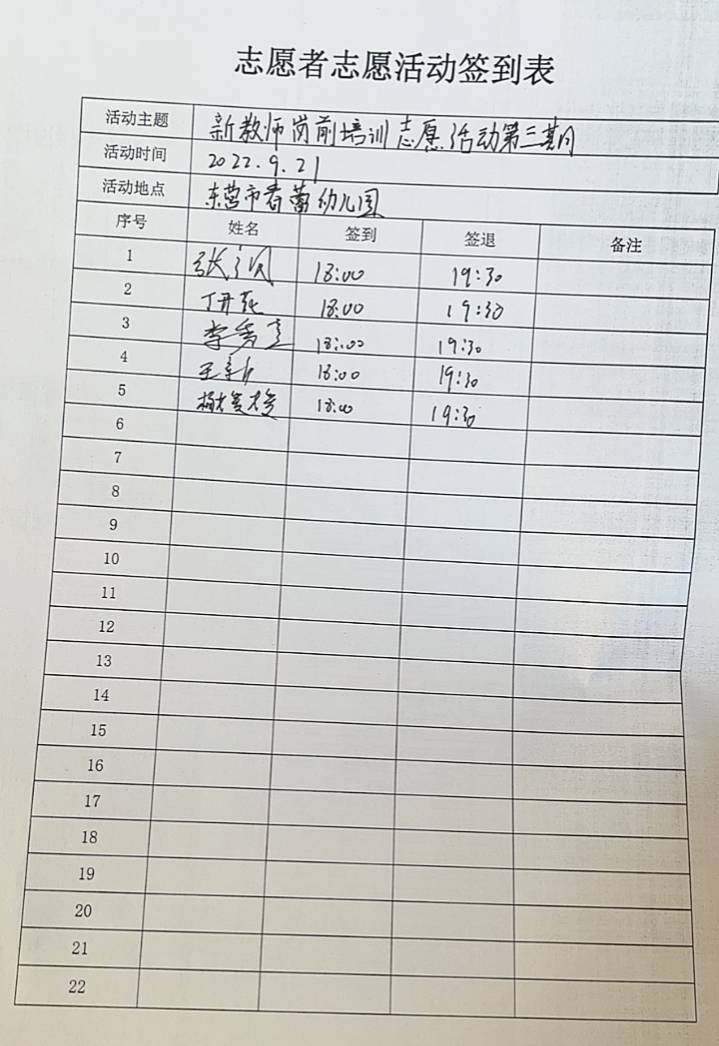 志愿者志愿活动签到表
活动主题 新教师岗前培训志愿活动第三期
活动时间 2022.9.21
活动地点 东营市春蕾幼儿园
序号 姓名 签到 签退 备注
1 18:00 19:30
2 18:00 19:30
3 18:00 19:30
4 18:00 19:30
5 18:00 19:30
6
7
8
9
10
11
12
13
14
15
16
17
18
19
20
21
22